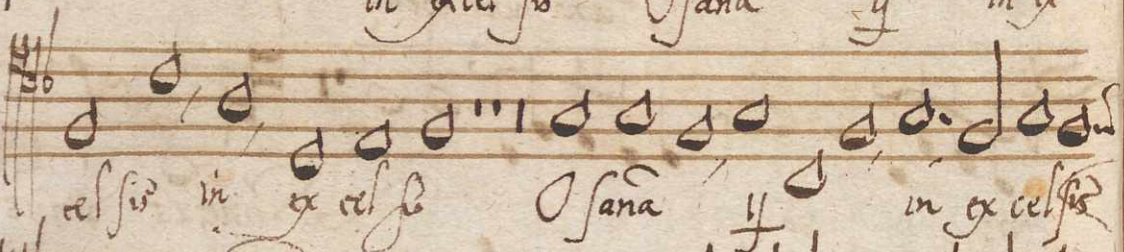 in excel sis Osana ij in ex
cel sis in ex cel sis O sana ij in ex cel sis